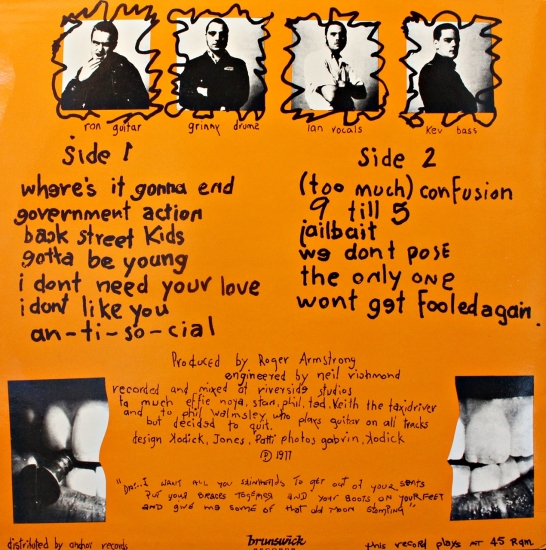 ron guitar
grinny drums
Ian vocals
Kev bass
Side 1
where's it gonna end
government action
back street Kids
gotta be young
i dont need your love
i dont like you
an-ti-so-cial
Side 2
(too much) confusion
9 till 5
jailbait
we dont pose
the only one
wont get fooled again.
Produced by Roger Armstrong
engineered by neil richmond
recorded and mixed at riverside studios
ta much effie noya, stan, phil, ted, Keith the taxidriver
and to phil walmsley who plays guitar on all tracks
but decided to quit.
design Kodick, Jones, Patti photos gobvin, Kodick
Ⓟ 1977
"I WANT ALL YOU SKINHEADS TO GET OUT OF YOUR SEATS
PUT YOUR BRACES TOGETHER AND YOUR BOOTS ON YOUR FEET
AND GIVE ME SOME OF THAT OLD MOON STOMPING"
distributed by anchor records
brunswick
RECORDS
this record plays AT 45 Rpm